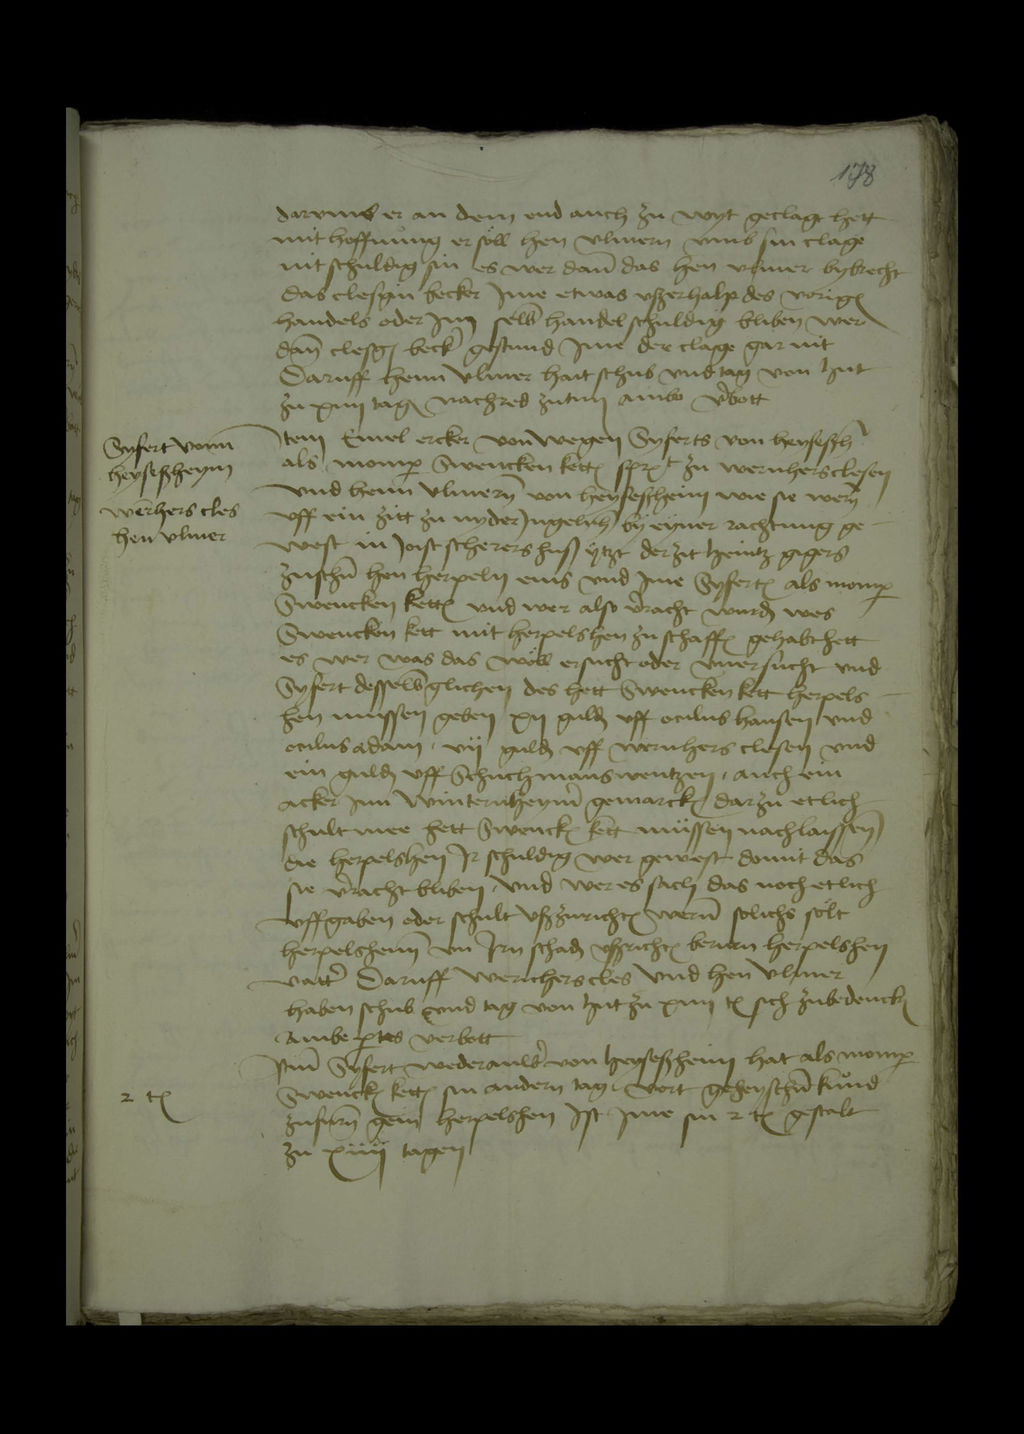 178
darumb er an dem end auch zu wyt geclagt hett
mit hoffnung er söll hen ulmern umb sin clage
nit schuldig sin es wer dan das hen ulmer bybrecht
das clesgin becker Ime etwas ußerhalp des vorigen
handels oder Im selb handel schuldig bliben wer
dan clesgin becker gestund Ime der clage gar nit
Daruff henn Ulmer hait schub und tag von hut
zu xiiii tagen nachred zutun ambo verbott
Syfert vom
heyseßheym
wernhers cles
hen ulmer
Item Emel ercker von wegen Syferts von heyseßh
als momper Swencken ketten spricht zu wernhers clesen
und henn Ulmern von heyseßheim wie sie wern
uff ein zitt zu nyder Ingelnh by eyner rachtung ge
west in Joist scherers huß ytzt der zit heintz gigers
zuschen hen herpeln eins und Ime Syferten als momper
Swencken ketten und wer also veracht wurden wes
Swencken kett mit herpelshen zu schaffen gehabt hett
es wer was das wöll ersucht oder unersucht und
Syfert desselbglichen des hett Swencken kett herpels
hen mussen geben xii gulden uff oculus hansen und
oculus adam vii gulden uff wernhers clesen und
ein gulden uff Schuchmans wentzen auch ein
acker Inn Winternheym gemarcken dar zu etlich
schult mee hett Swencken kett müssen nachlaissen
die herpelshen Ir schuldig wer gewest domit das
sie veracht bliben und wer es sach das noch etlich
uffgaben oder schult ußzurichten wern solichs solt
herpelshenn on Irn schaden ußrichten berurn herpelshen
vatter Daruff wernhers cles und hen Ulmer
haben schub und tag von hut zu xiiii t sich zubedencken
Ambe partes verbott
Item Syfert von heyseßheim hat als momper
2 t
Swencken ketten sin andern tag vort geheyschen kund
zufurn gein herpelshen Ist Ime sin 2 t gestalt
zu xiiii tagen